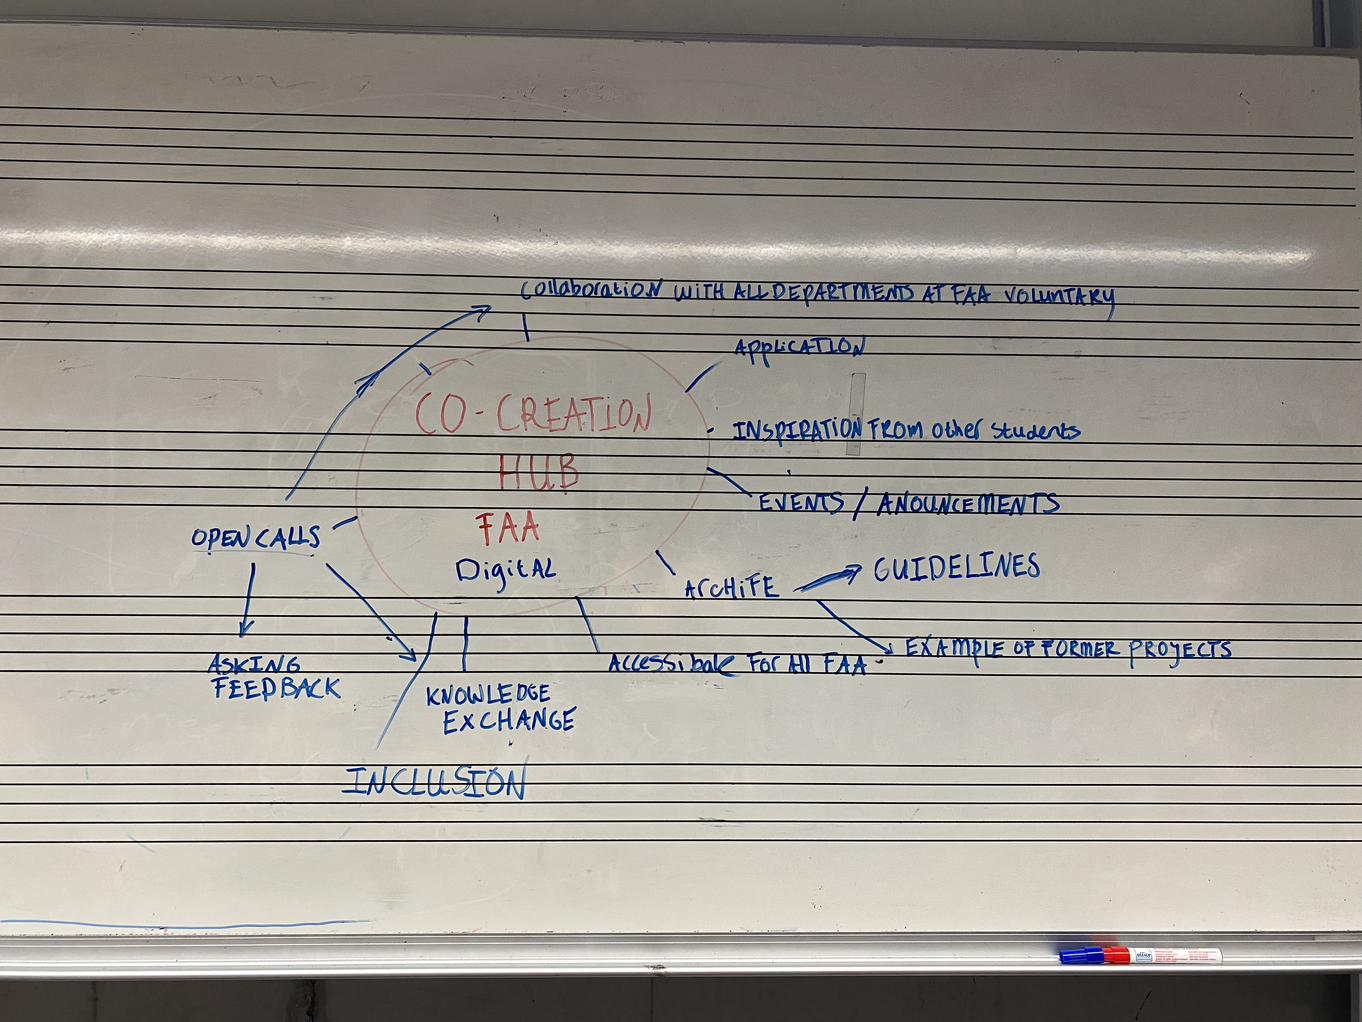 Collaboration WITH ALL DEPARTMENTS AT FAA VOLUNTARY
APPLICATION
CO-CREATION
HUB
FAA
DigitAL
INSPIRATION FROM other students
EVENTS / ANOUNCEMENTS
OPEN CALLS
ARCHIFE
GUIDELINES
EXAMPLE OF FORMER PROYECTS
ASKING
FEEDBACK
Accessibale For All FAA
KNOWLEDGE
EXCHANGE
INCLUSION
office